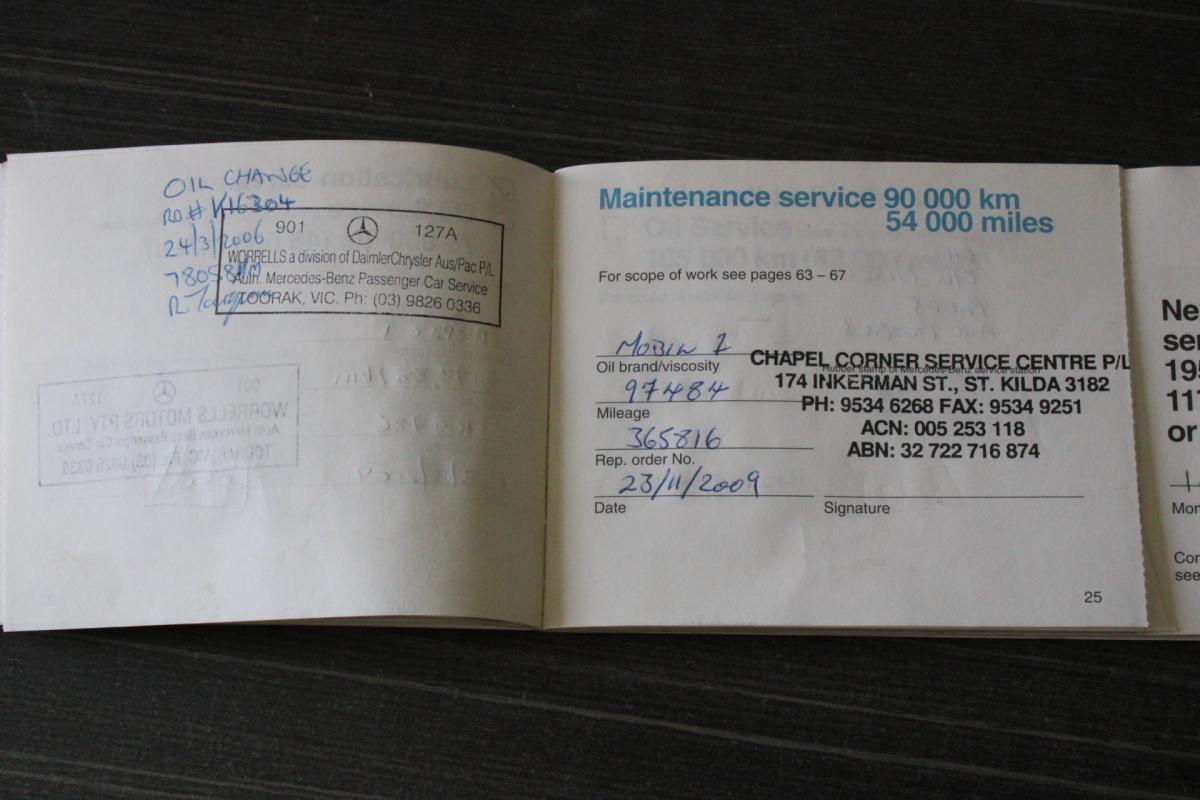 OIL CHANGE
RO# K16304
24/3/2006
78058KM
901 127A
WORRELLS a division of DaimlerChrysler Aus/Pac P/L
Auth. Mercedes-Benz Passenger Car Service
TOORAK, VIC. Ph: (03) 9826 0336
901 127A
WORRELLS MOTORS PTY. LTD.
Auth. Mercedes Benz Passenger Car Service
TOORAK, VIC. Ph: (03) 9826 0336
Maintenance service 90 000 km
54 000 miles
For scope of work see pages 63 – 67
MOBIL 1
Oil brand/viscosity
97484
Mileage
365816
Rep. order No.
23/11/2009
Date
Rubber stamp of Mercedes-Benz service station
CHAPEL CORNER SERVICE CENTRE P/L
174 INKERMAN ST., ST. KILDA 3182
PH: 9534 6268 FAX: 9534 9251
ACN: 005 253 118
ABN: 32 722 716 874
Signature
25
Ne
ser
195
117
or
Mon
Con
see